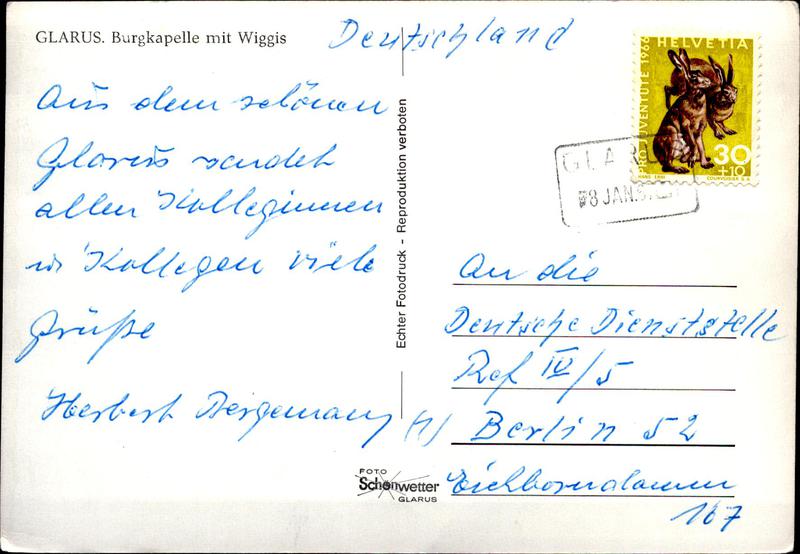 GLARUS. Burgkapelle mit Wiggis
Deutschland
Aus dem schönen
Glarus sendet
allen Kolleginnen
u. Kollegen viele
Grüße
Herbert Bergemann
Echter Fotodruck - Reproduktion verboten
HELVETIA
PRO JUVENTUTE 1966
30
+10
HANS ERNI
COURVOISIER S.A.
GLARUS
8 JAN.
An die
Deutsche Dienststelle
Ref IV/5
(1) Berlin 52
Eichborndamm
167
FOTO
Schönwetter
GLARUS